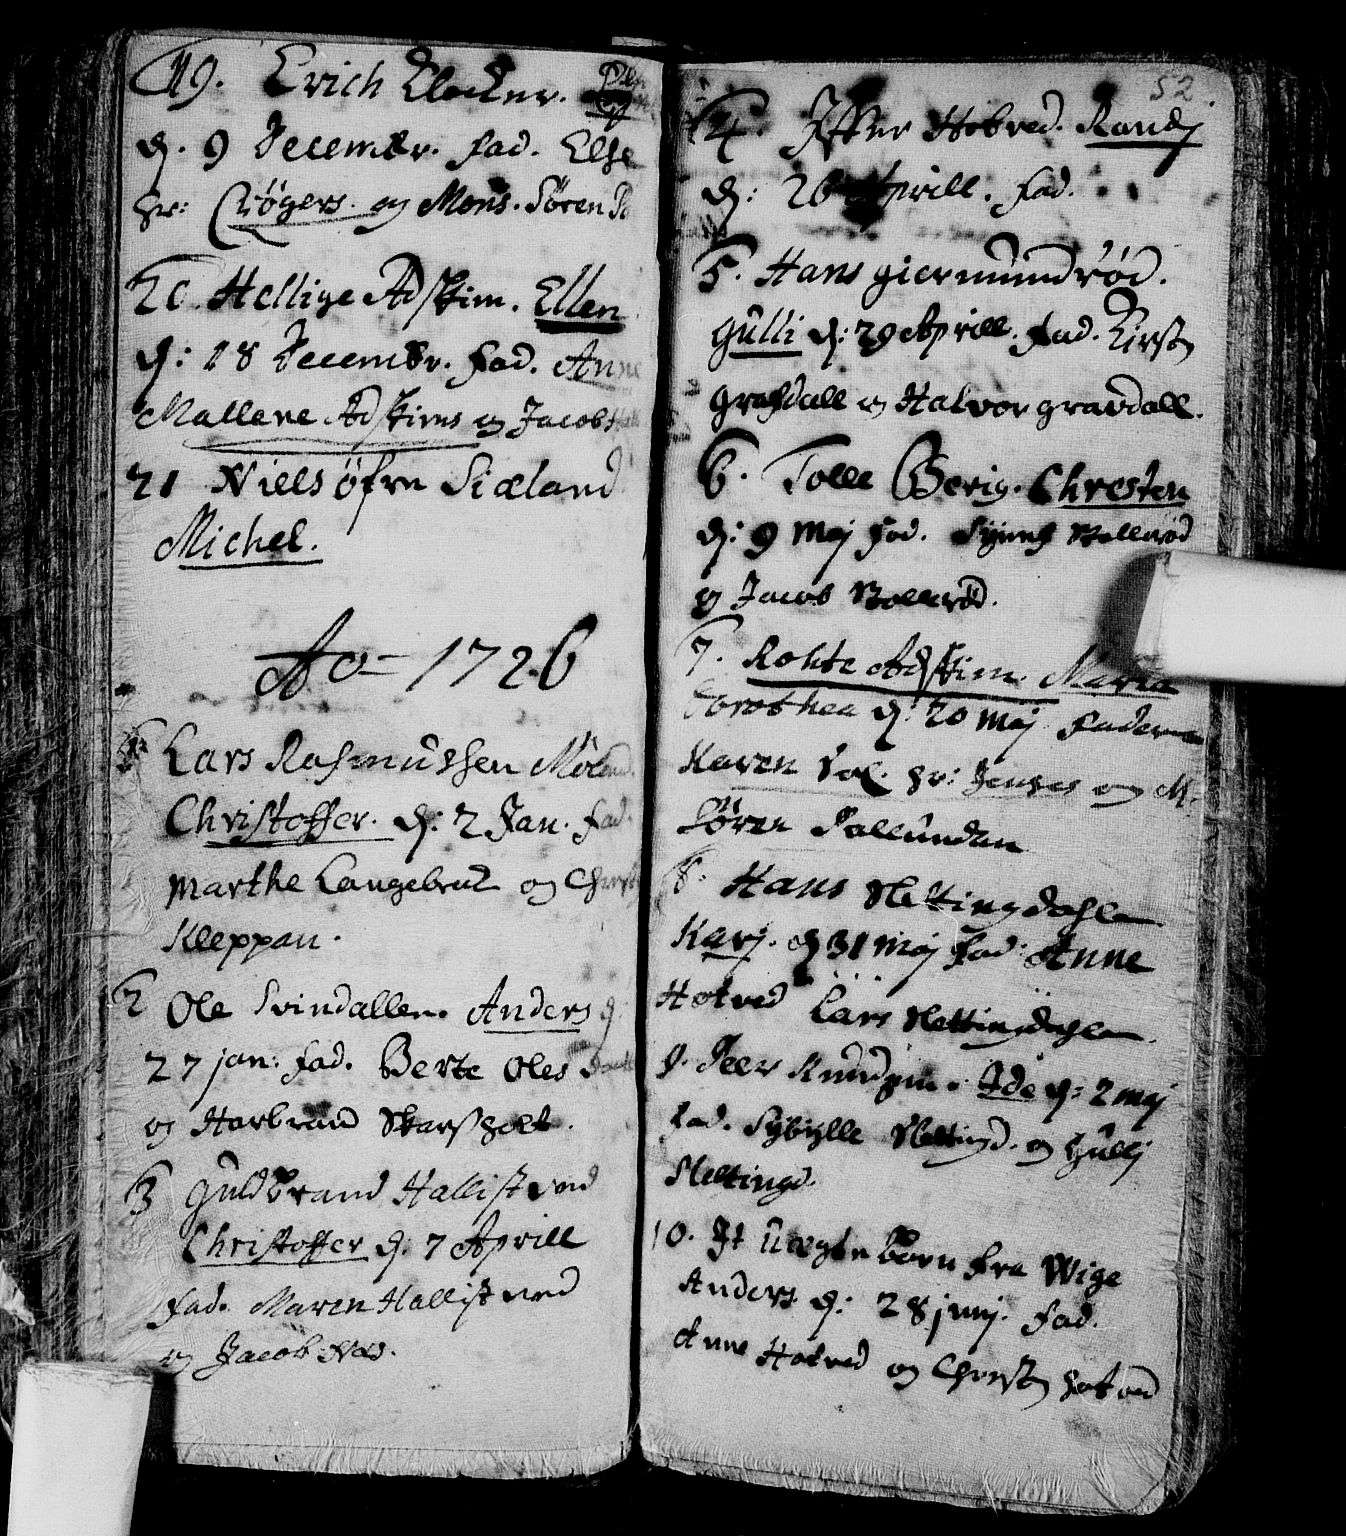 19. Erich Klocker.
d. 9 December. fad. Else
hr: Crøgers. og Mons. Søren
20. Hellige Adskim. Ellen
d: 18 December. Fad. Anne
Mallene Adskims og Jacob
21 Niels øfre Siæland
Michel.
Ao 1726
1 Lars Rasmussen
Christoffer. d: 2 Jan. fad.
Marthe Langebrut og
Kleppan.
2 Ole Svindallen. Anders d
27 jan: fad. Berte Oles
og Harbrand Skarsholt.
3 Guldbrand Hallistved
Christoffer d: 7 Aprill
Fad. Maren Hallistved
og Jacob Nes.
52.
4. Iffver Hotved. Randj
d: 26 Aprill. Fad.
5. Hans giermundrød.
Gulli d: 29 Aprill. Fad. Kirsten
Grafdall og Halvor gravdall.
6. Tolle Berig. Christen
d: 9 Maj Fad. Bollerød
og Jacob Bollerød.
7. Rohte Adskim. Maria
Dorothea d: 20 Maj Faderne
Karen Sal. hr: Jenses og M.
Søren
8. Hans Slettingdahlen
Karj. d 31 Maj Fad: Anne
Hotved Lars Slettingdahlen.
9. Peer Knudsen. Ide d: 2
fad. Sybylle Slettingd. og Gullj
Slettingd.
10. It Uægte børn fra Wige
Anders d: 28 junj. Fad.
Anne Hotved og Christen Hotved